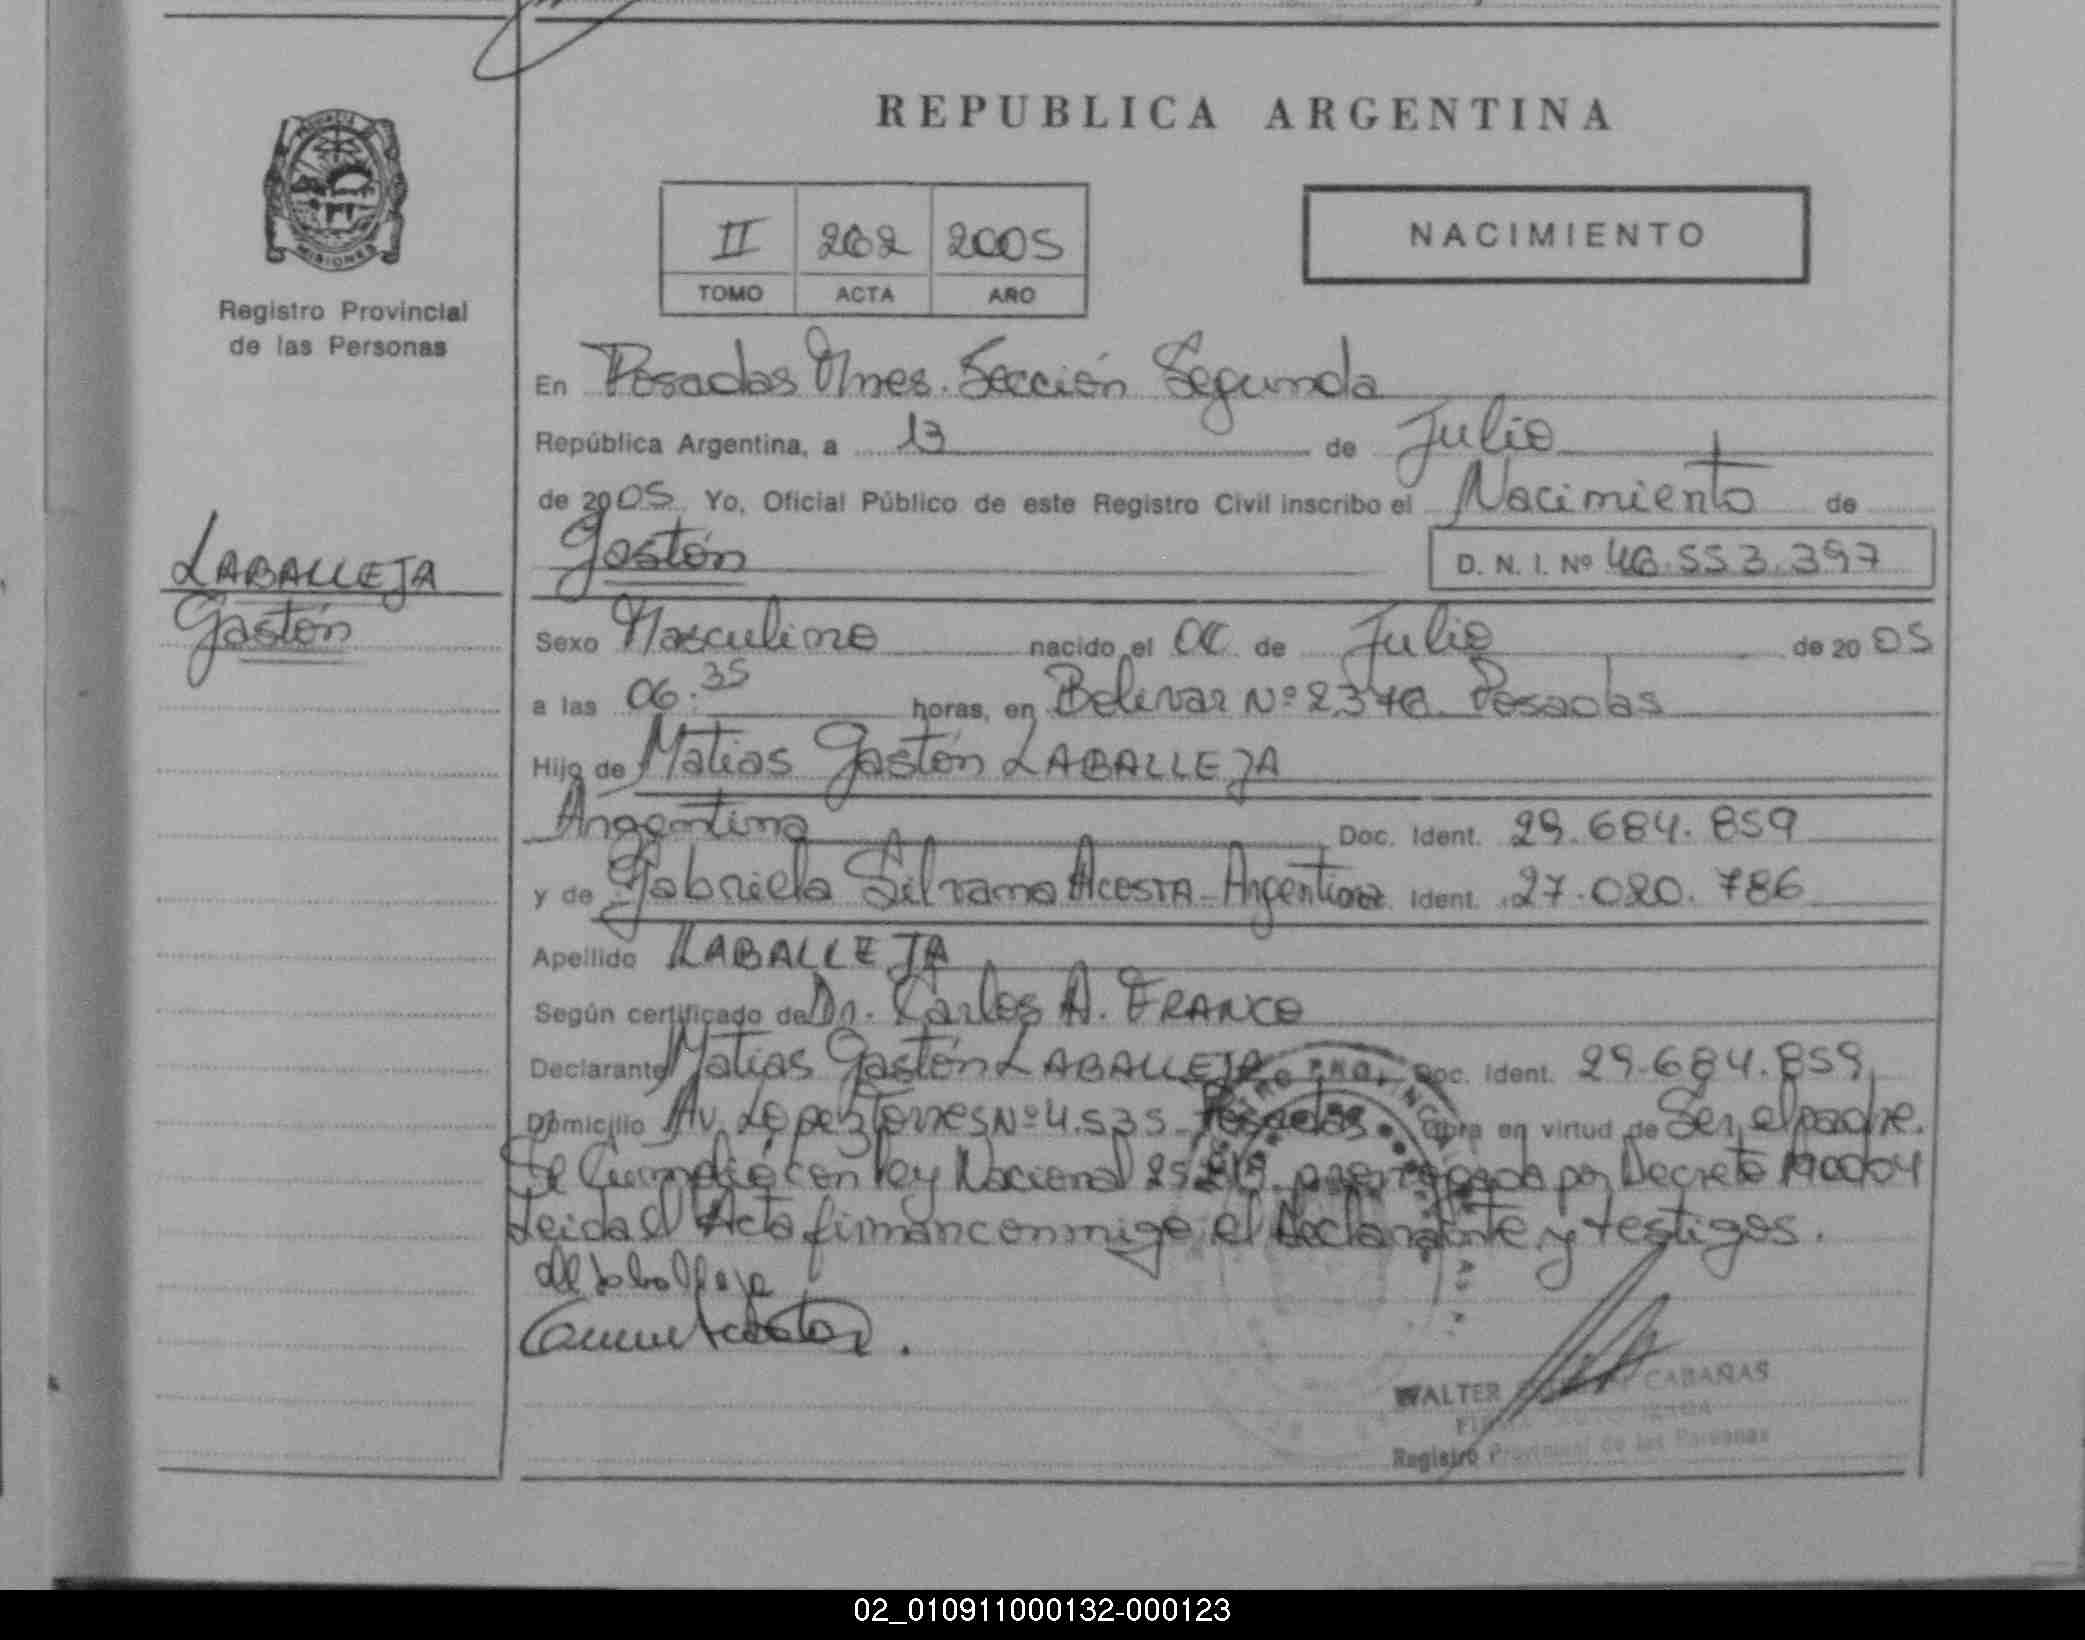 REPUBLICA ARGENTINA
PROVINCIA DE MISIONES
Registro Provincial
de las Personas
II 262 2005
TOMO ACTA AÑO
NACIMIENTO
En Posadas Mnes. Sección Segunda
República Argentina, a 13 de Julio
de 2005 Yo, Oficial Público de este Registro Civil inscribo el Nacimiento de
Gastón D. N. I. Nº 46.553.397
LABALLEJA
Gastón
Sexo Masculino nacido el de Julio de 2005
a las 06:35 horas, en Bolivar Nº Posadas
Hijo de Matias Gastón LABALLEJA
Argentina Doc. Ident. 29.684.859
y de Gabriela Silvana ACOSTA - Argentina Ident. 27.020.786
Apellido LABALLEJA
Según certificado de Dr. Carlos A. FRANCO
Declarante Matias Gastón LABALLEJA Doc. Ident. 29.684.859
Domicilio Av. Lopez Torres Nº 4.535 Posadas Obra en virtud de Ser el padre.
Se Cumplió con ley Nacional prorrogada por Decreto
Leida el Acta firman conmigo el declarante y testigos.
WALTER CABAÑAS
Registro Provincial de las Personas
02_010911000132-000123